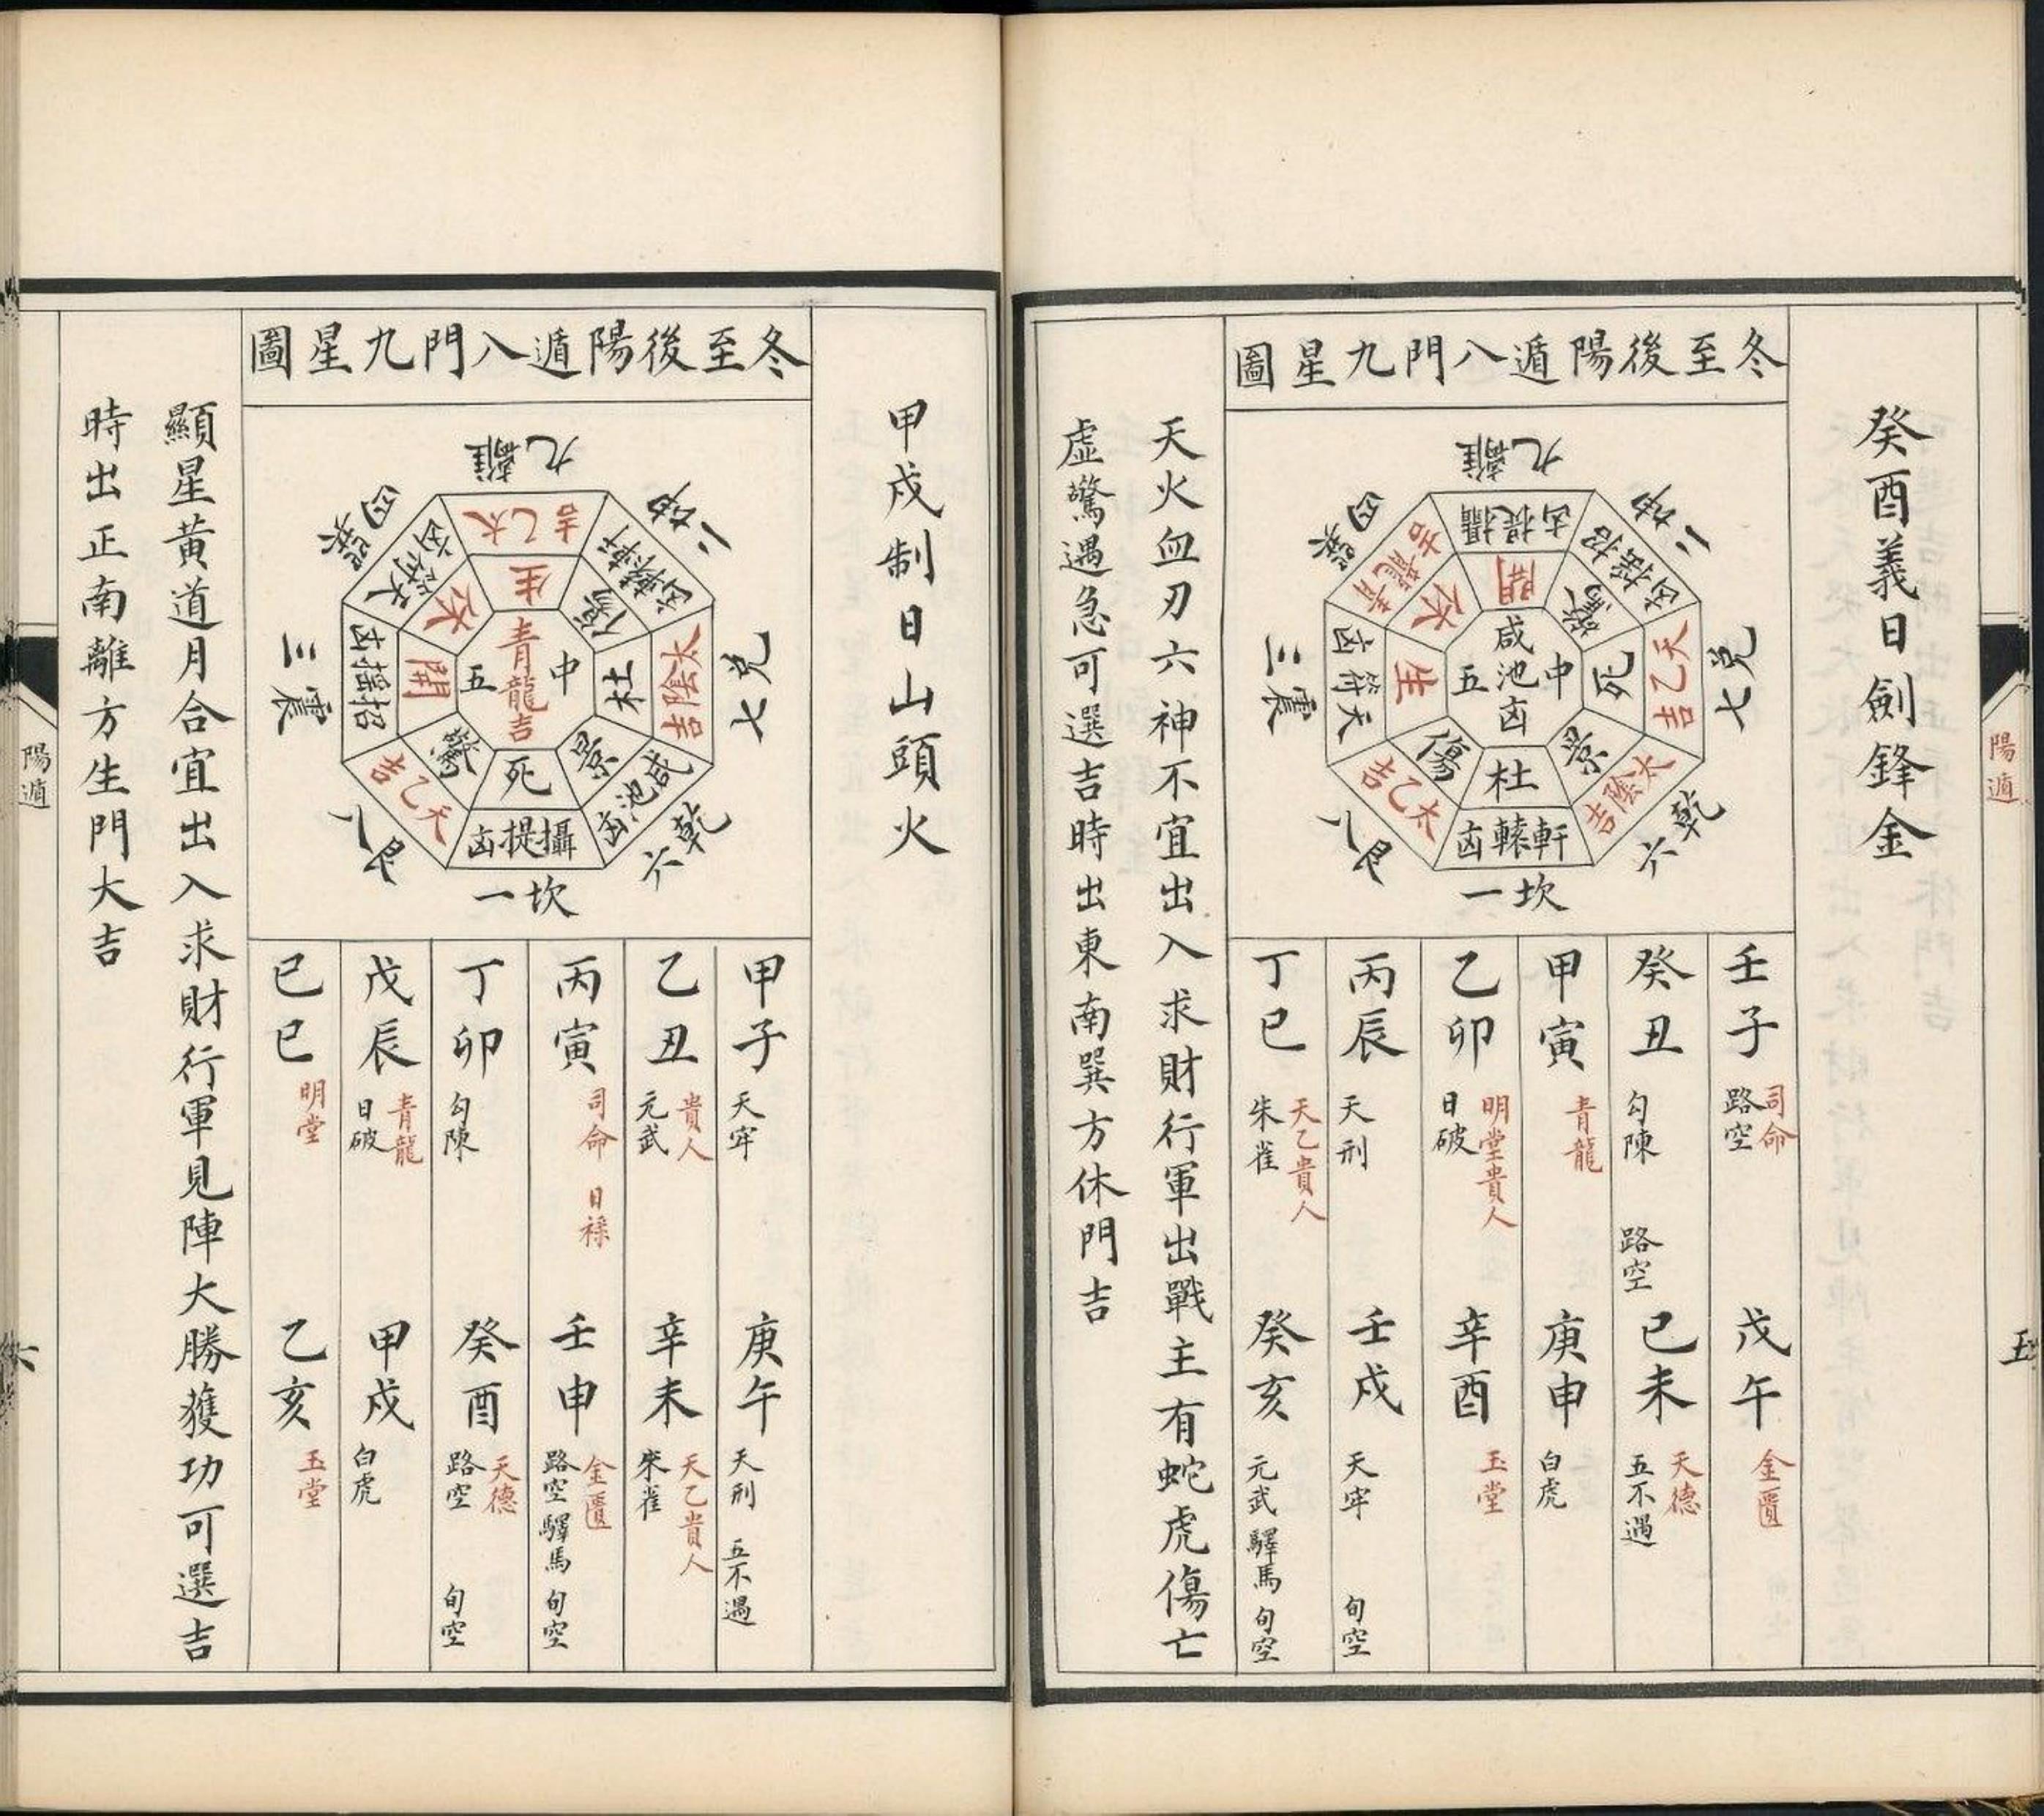 陽遁
五
癸酉義日劍鋒金
冬至後陽遁八門九星圖
九離
二坤
七兌
六乾
一坎
八艮
三震
四巽
攝提凶
招搖凶
天乙吉
太陰吉
軒轅凶
太乙吉
天符凶
青龍吉
開
驚
死
景
杜
傷
生
休
中五
咸池凶
壬子 司命 路空
戊午 金匱
癸丑 勾陳 路空
己未 天德 五不遇
甲寅 青龍
庚申 白虎
乙卯 明堂貴人 日破
辛酉 玉堂
丙辰 天刑
壬戌 天牢 旬空
丁巳 天乙貴人 朱雀
癸亥 元武 驛馬 旬空
天火血刃六神不宜出入求財行軍出戰主有蛇虎傷亡
虛驚遇急可選吉時出東南巽方休門吉
甲戌制日山頭火
冬至後陽遁八門九星圖
九離
二坤
七兌
六乾
一坎
八艮
三震
四巽
太乙吉
軒轅凶
太陰吉
咸池凶
攝提凶
天乙吉
招搖凶
天符凶
生
傷
杜
景
死
驚
開
休
中五
青龍吉
甲子 天牢
庚午 天刑 五不遇
乙丑 貴人 元武
辛未 天乙貴人 朱雀
丙寅 司命 日祿
壬申 金匱 路空 驛馬 旬空
丁卯 勾陳
癸酉 天德 路空 旬空
戊辰 青龍 日破
甲戌 白虎
己巳 明堂
乙亥 玉堂
顯星黃道月合宜出入求財行軍見陣大勝獲功可選吉
時出正南離方生門大吉
陽遁
六